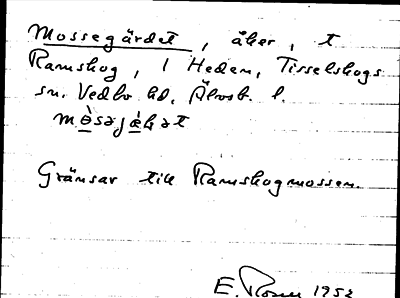 Mossegärdet, åker, t
Ramskog, i Heden, Tisselskogs
sn. Vedbo hd. Älvsb. l.
Gränsar till Ramskogmossen.
E. Rosén 1952